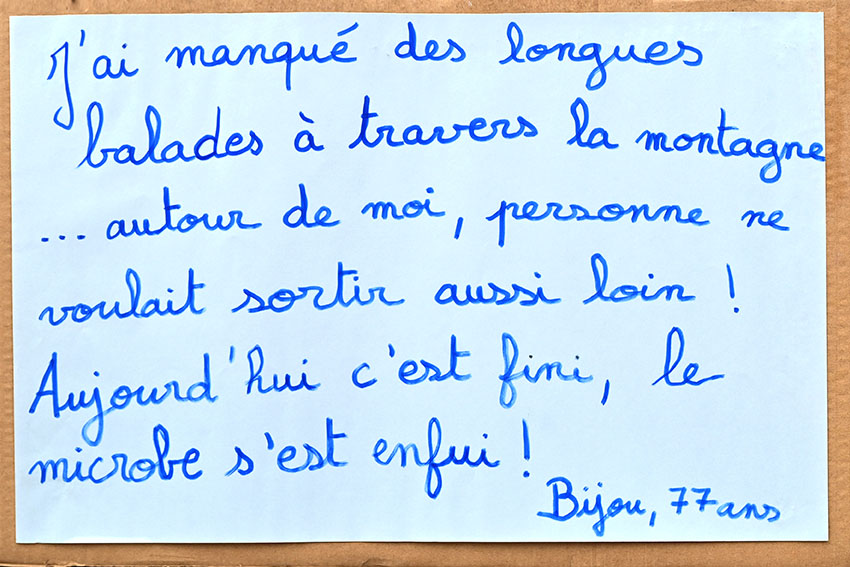 J'ai manqué des longues
balades à travers la montagne
... autour de moi, personne ne
voulait sortir aussi loin !
Aujourd'hui c'est fini, le
microbe s'est enfui !
Bijou, 77 ans